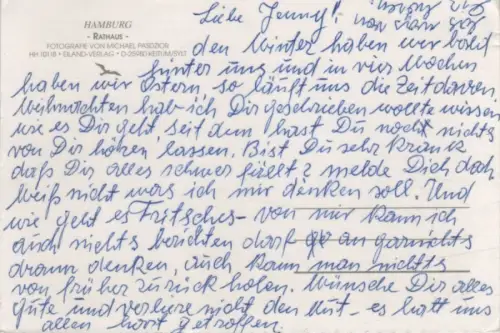 HAMBURG
- RATHAUS -
FOTOGRAFIE VON MICHAEL PASDZIOR
EILAND-VERLAG
Liebe Jenny!
den Winter haben wir bald
hinter uns und in vier Wochen
haben wir Ostern, so läuft uns die Zeit davon,
Weihnachten hab ich Dir geschrieben wollte wissen
wie es Dir geht, seit dem hast Du noch nichts
von Dir hören lassen. Bist Du sehr krank
daß Dir alles schwer fällt? melde Dich doch
Weiß nicht was ich mir denken soll. Und
wie geht es Fritsches - von mir kann ich
auch nichts berichten darf an garnichts
drann denken, auch kann man nichts
von früher zurück holen. Wünsche Dir alles
Gute und verliere nicht den Mut - es hatt uns
allen hart getroffen.